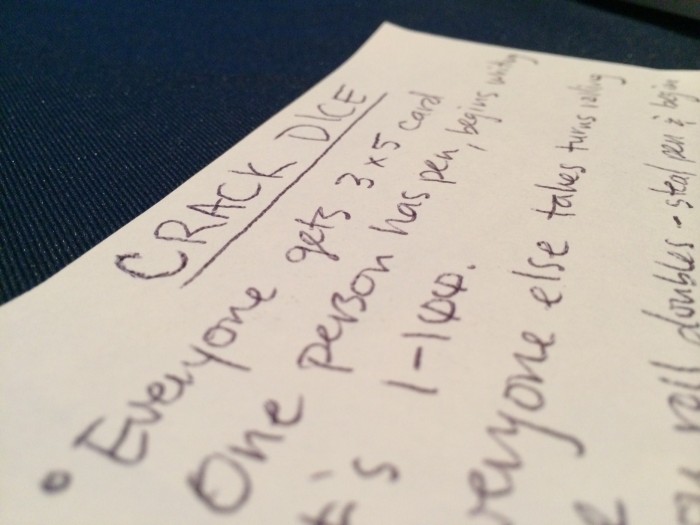 CRACK DICE
• Everyone gets 3x5 card
One person has pen, begins writing
#'s 1-100.
everyone else takes turns rolling
roll doubles - steal pen & begin